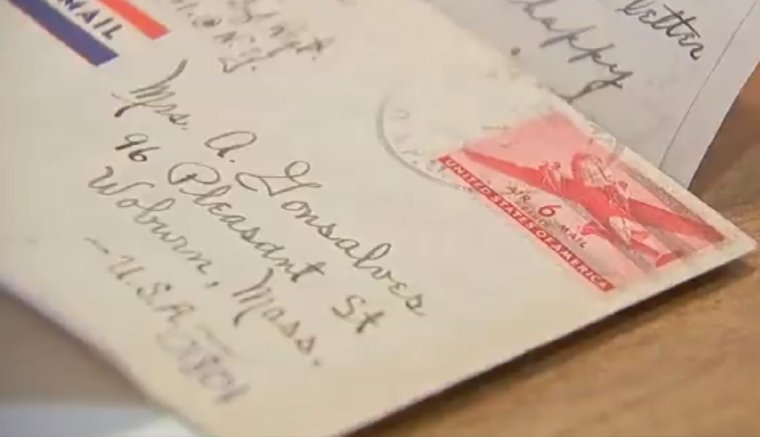 MAIL
Mrs. A. Gonsalves
96 Pleasant St
Woburn, Mass.
- U.S.A
letter
happy
AIR 6 MAIL
UNITED STATES OF AMERICA